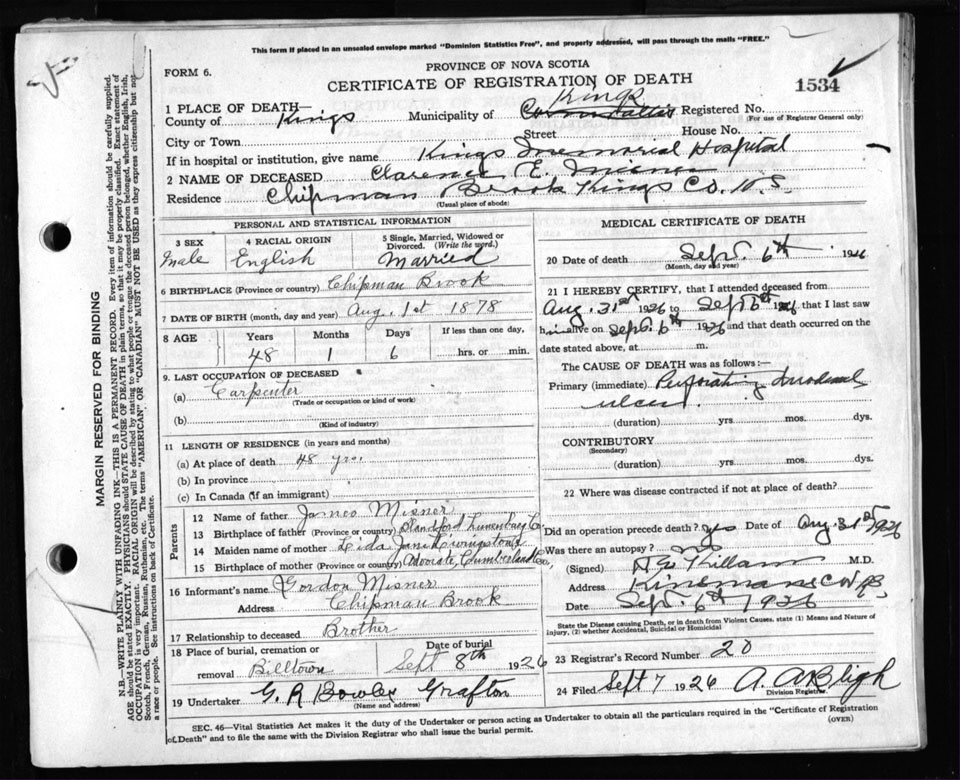 This form if placed in an unsealed envelope marked "Dominion Statistics Free", and properly addressed, will pass through the mails "FREE."
FORM 6.
PROVINCE OF NOVA SCOTIA
CERTIFICATE OF REGISTRATION OF DEATH
1534
1 PLACE OF DEATH—
Kings
County of Kings Municipality of Cornwallis Registered No.
(For use of Registrar General only)
City or Town Street House No.
If in hospital or institution, give name Kings Memorial Hospital
2 NAME OF DECEASED Clarence E. Misner
Residence Chipman Brook Kings Co. N.S.
(Usual place of abode)
PERSONAL AND STATISTICAL INFORMATION
3 SEX Male
4 RACIAL ORIGIN English
5 Single, Married, Widowed or Divorced. (Write the word.) Married
6 BIRTHPLACE (Province or country) Chipman Brook
7 DATE OF BIRTH (month, day and year) Aug. 1st 1878
8 AGE Years 48 Months 1 Days 6 If less than one day, hrs. or min.
9. LAST OCCUPATION OF DECEASED
(a) Carpenter
(Trade or occupation or kind of work)
(b)
(Kind of industry)
11 LENGTH OF RESIDENCE (in years and months)
(a) At place of death 48 yrs.
(b) In province
(c) In Canada (if an immigrant)
Parents
12 Name of father James Misner
13 Birthplace of father (Province or country) Blandford Lunenburg Co.
14 Maiden name of mother Jane Livingstone
15 Birthplace of mother (Province or country) Advocate, Cumberland Co.,
16 Informant's name Gordon Misner
Address Chipman Brook
17 Relationship to deceased Brother
18 Place of burial, cremation or removal Billtown
Date of burial Sept 8th 1926
19 Undertaker G. R Bowles Grafton
(Name and address)
MEDICAL CERTIFICATE OF DEATH
20 Date of death Sept. 6th 1926
(Month, day and year)
21 I HEREBY CERTIFY, that I attended deceased from
Aug. 31st 1926 to Sept 6th 1926 that I last saw
him alive on Sept. 6th 1926 and that death occurred on the
date stated above, at m.
The CAUSE OF DEATH was as follows:—
Primary (immediate) Perforating duodenal
ulcer.
(duration) yrs. mos. dys.
CONTRIBUTORY
(Secondary)
(duration) yrs. mos. dys.
22 Where was disease contracted if not at place of death?
Did an operation precede death? yes Date of Aug 31st 1926
Was there an autopsy? no
(Signed) Killam M.D.
Address
Date Sept. 6th 1926
State the Disease causing Death, or in death from Violent Causes, state (1) Means and Nature of
injury, (2) whether Accidental, Suicidal or Homicidal
23 Registrar's Record Number 20
24 Filed Sept 7 1926 A. A. Bligh
Division Registrar.
SEC. 46—Vital Statistics Act makes it the duty of the Undertaker or person acting as Undertaker to obtain all the particulars required in the "Certificate of Registration
of Death" and to file the same with the Division Registrar who shall issue the burial permit.
(OVER)
MARGIN RESERVED FOR BINDING
N.B.—WRITE PLAINLY WITH UNFADING INK—THIS IS A PERMANENT RECORD. Every item of information should be carefully supplied.
AGE should be stated EXACTLY. PHYSICIANS should STATE CAUSE OF DEATH in plain terms, so that it may be properly classified. Exact statement of
OCCUPATION is very important. RACIAL ORIGIN will be described by stating to what people or tongue the deceased person belonged, whether English, Irish,
Scotch, French, German, Russian, Ruthenian, etc. The terms "AMERICAN" OR "CANADIAN" MUST NOT BE USED as they express citizenship but not
a race or people. See instructions on back of Certificate.